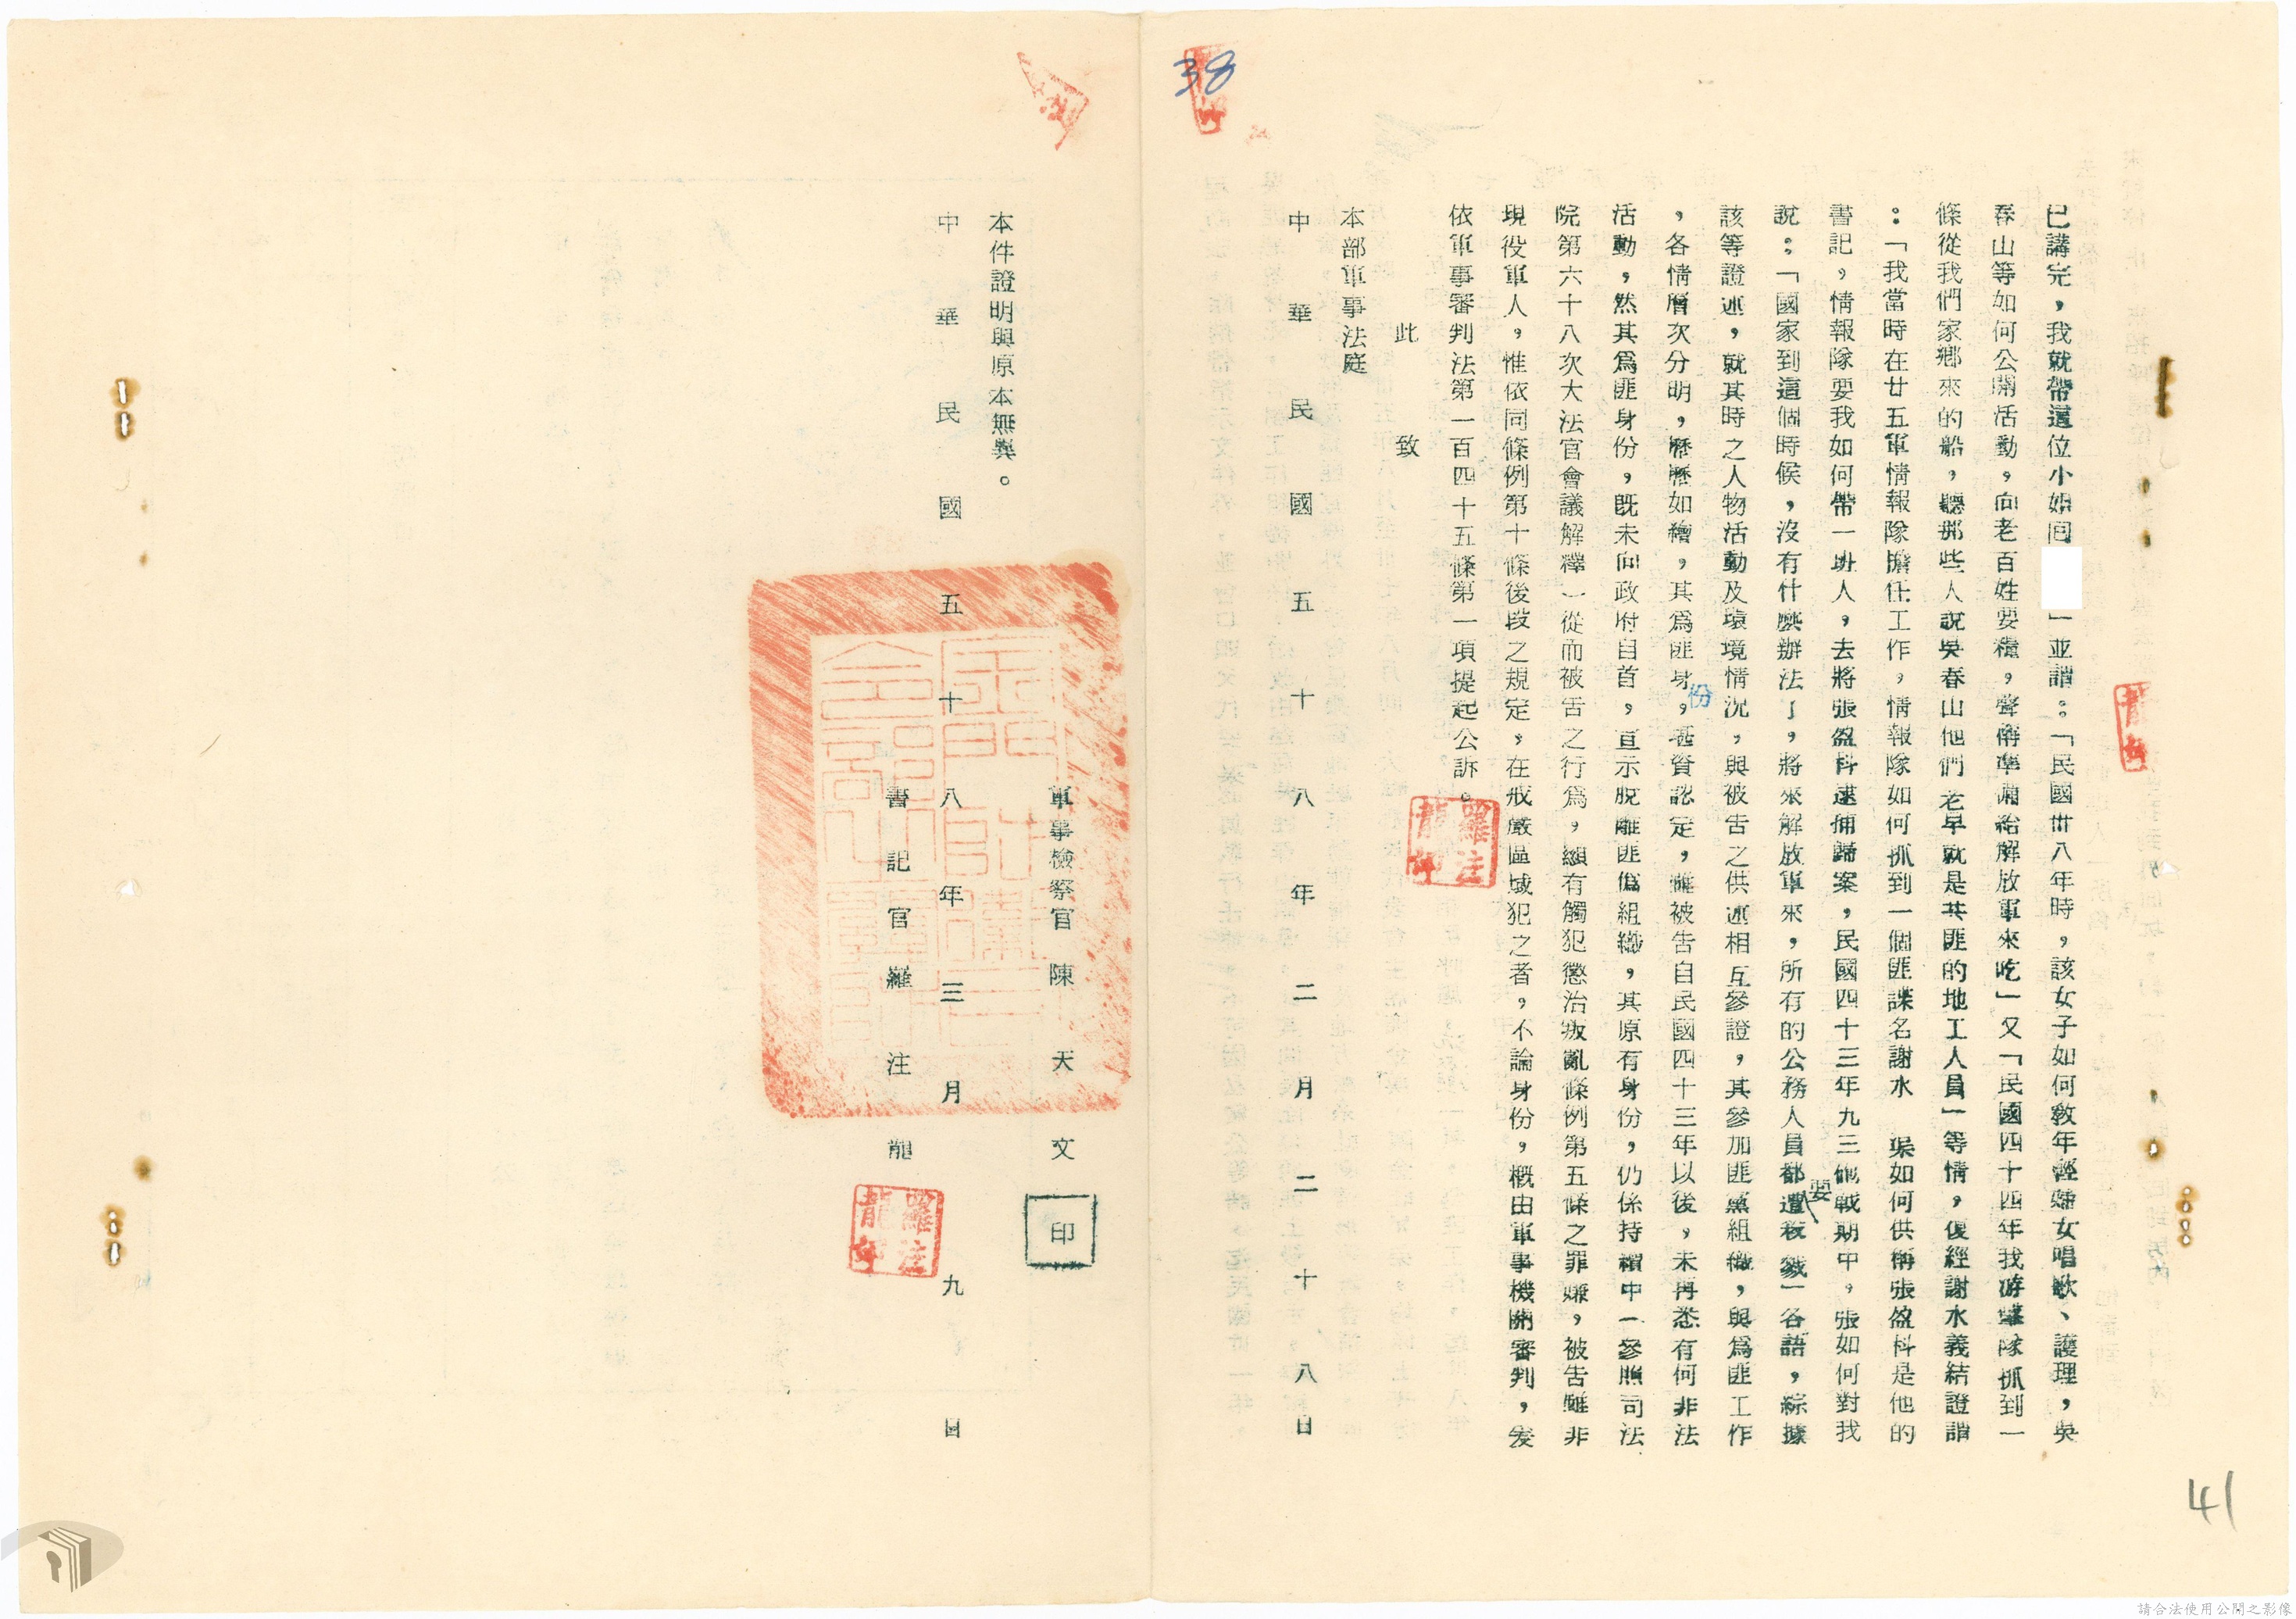 38
已講完，我就帶這位小姐回　」並謂：「民國卅八年時，該女子如何教年輕婦女唱歌、護理，吳
春山等如何公開活動，向老百姓要糧，聲傳準備給解放軍來吃」又「民國四十四年我游擊隊抓到一
條從我們家鄉來的船，聽那些人說吳春山他們老早就是共匪的地工人員」等情，復經謝水義結證謂
：「我當時在廿五軍情報隊擔任工作，情報隊如何抓到一個匪諜名謝水　渠如何供稱張盈科是他的
書記，情報隊要我如何帶一班人，去將張盈科逮捕歸案，民國四十三年九三砲戰期中，張如何對我
說：「國家到這個時候，沒有什麼辦法了，將來解放軍來，所有的公務人員都要遭殺戮」各語，綜據
該等證述，就其時之人物活動及環境情況，與被告之供述相互參證，其參加匪黨組織，與為匪工作
，各情層次分明，歷歷如繪，其為匪身份，甚資認定，雖被告自民國四十三年以後，未再悉有何非法
活動，然其為匪身份，既未向政府自首，宣示脫離匪偽組織，其原有身份，仍係持續中－參照司法
院第六十八次大法官會議解釋－從而被告之行為，顯有觸犯懲治叛亂條例第五條之罪嫌，被告雖非
現役軍人，惟依同條例第十條後段之規定，在戒嚴區域犯之者，不論身份，概由軍事機關審判，爰
依軍事審判法第一百四十五條第一項提起公訴。
此　致
本部軍事法庭
中華民國五十八年二月二十八日
羅注龍印
軍事檢察官　陳天文　印
本件證明與原本無異。
中華民國五十八年三月九日
書記官　羅注龍
羅注龍印
41
請合法使用公開之影像